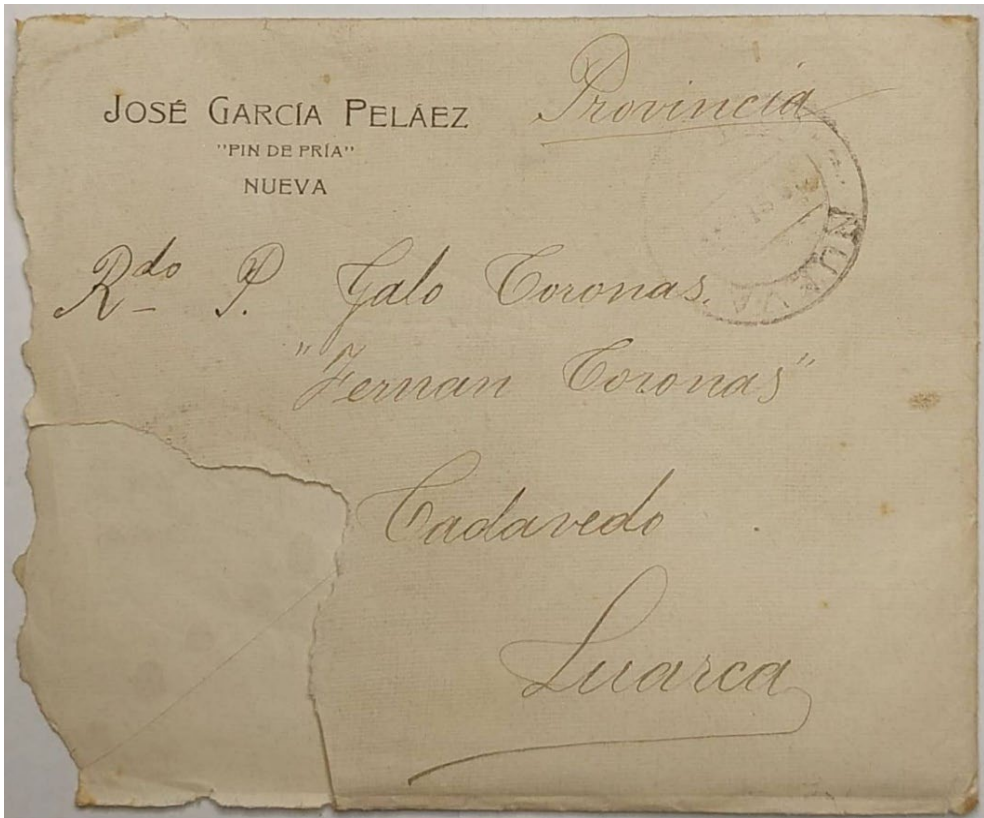 JOSÉ GARCÍA PELÁEZ
"PIN DE PRÍA"
NUEVA
Provincia
NUEVA
Rdo P. Galo Coronas.
"Fernan Coronas"
Cadavedo
Luarca